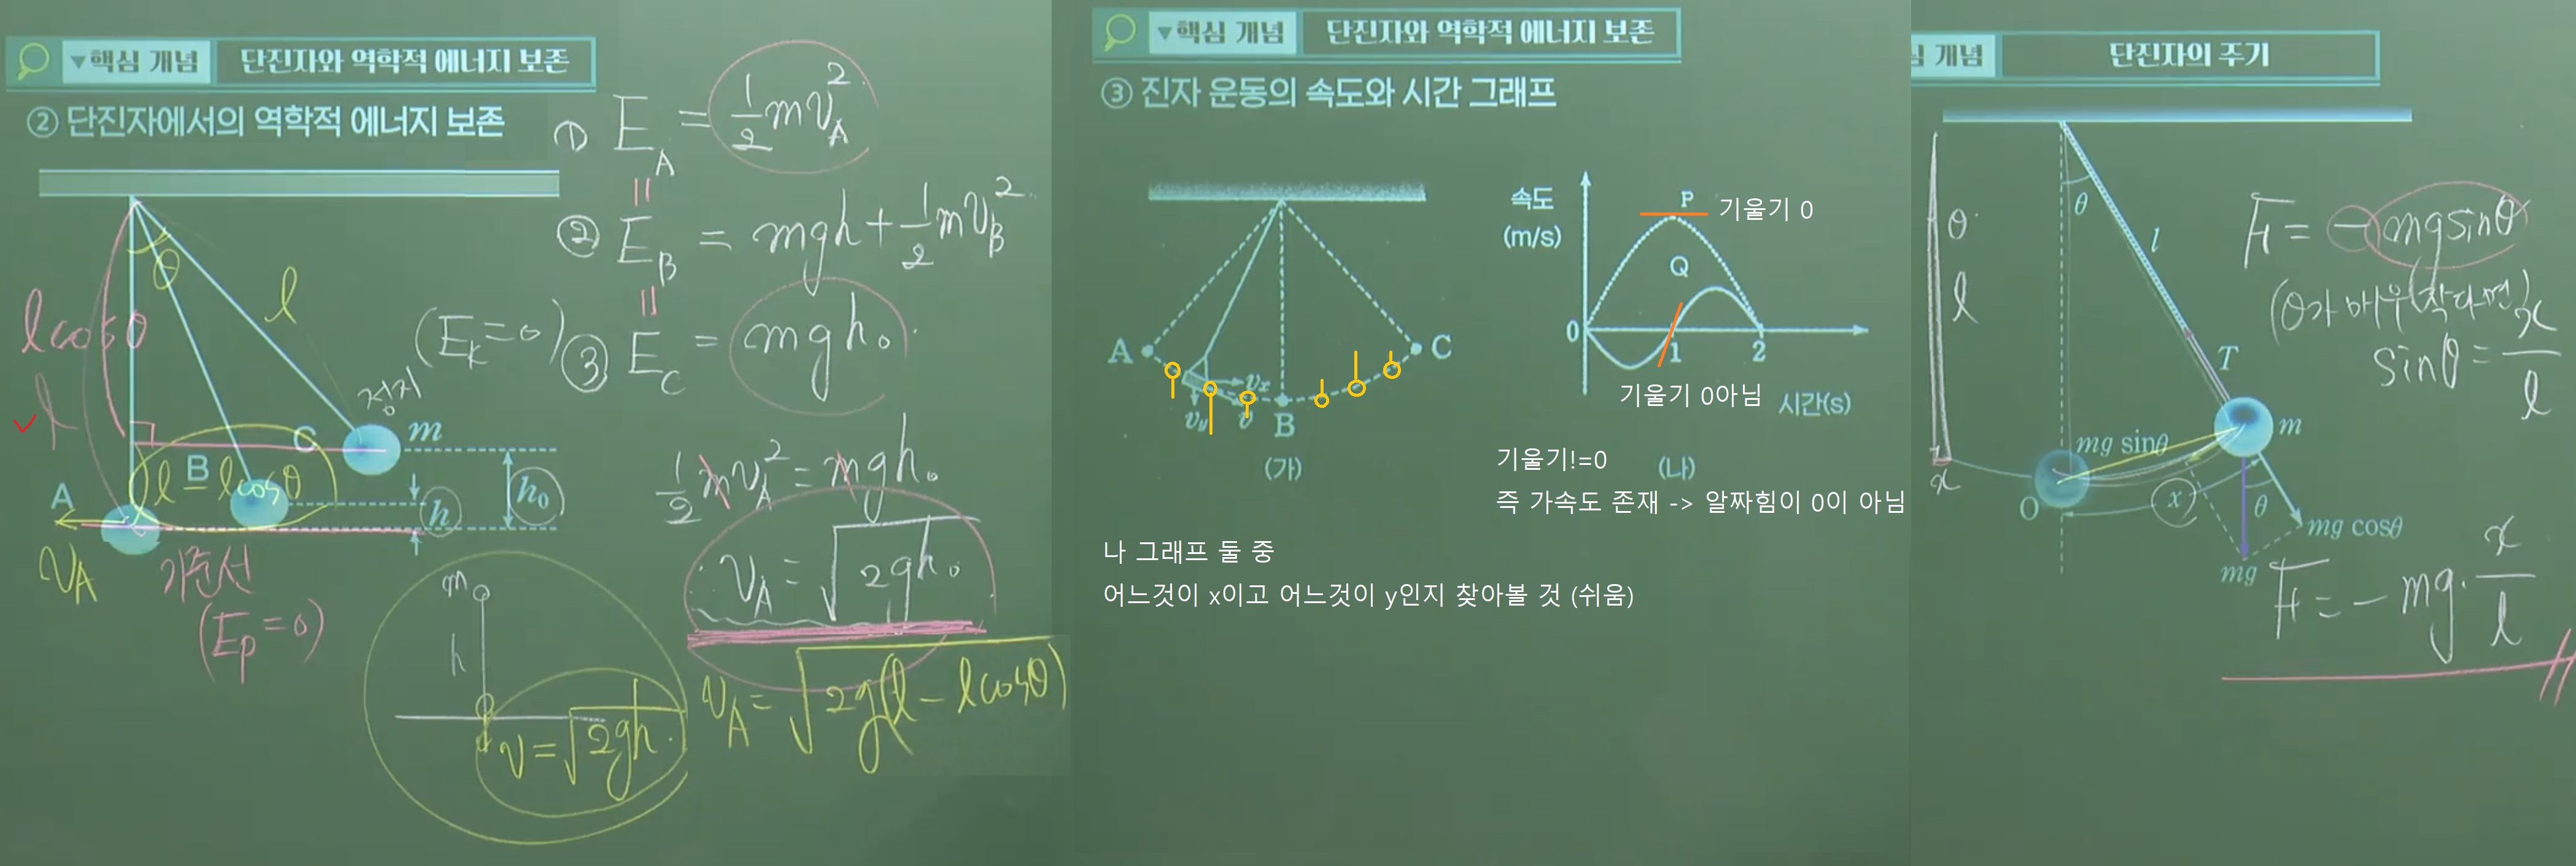 ▼핵심 개념 단진자와 역학적 에너지 보존
② 단진자에서의 역학적 에너지 보존
① E_A = 1/2 mv_A²
② E_B = mgh + 1/2 mv_B²
(E_K=0) ③ E_C = mgh₀
θ
l
lcosθ
l
정지
m
C
B
l - lcosθ
A
h
h₀
v_A
기준선
(E_p=0)
1/2 mv_A² = mgh₀
v_A = √2gh₀
v_A = √2g(l - lcosθ)
m
h
v = √2gh
▼핵심 개념 단진자와 역학적 에너지 보존
③ 진자 운동의 속도와 시간 그래프
A
B
C
vx
vy
v
(가)
속도
(m/s)
P
기울기 0
Q
0
1
2
기울기 0아님
시간(s)
(나)
기울기!=0
즉 가속도 존재 -> 알짜힘이 0이 아님
나 그래프 둘 중
어느것이 x이고 어느것이 y인지 찾아볼 것 (쉬움)
심 개념 단진자의 주기
θ
l
x
θ
l
T
m
mg sinθ
O
x
θ
mg cosθ
mg
F = -mgsinθ
(θ가 매우 작다면)
sinθ = x/l
F = -mg·x/l